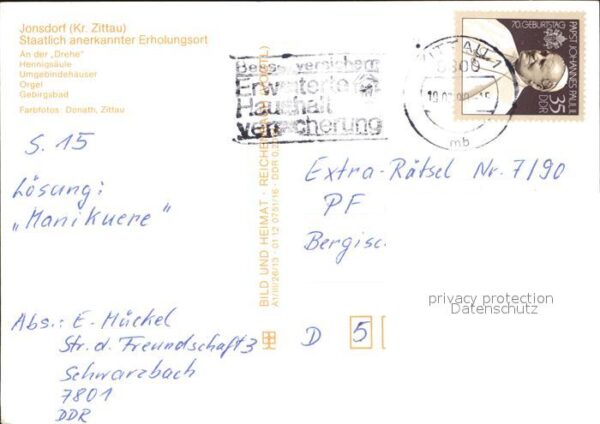 Jonsdorf (Kr. Zittau)
Staatlich anerkannter Erholungsort
An der „Drehe"
Hennigsäule
Umgebindehäuser
Orgel
Gebirgsbad
Farbfotos: Donath, Zittau
S. 15
Lösung:
„Manikuere"
Abs.: E. Mückel
Str. d. Freundschaft 3
Schwarzbach
7801
DDR
BILD UND HEIMAT · REICHENBACH
A1/III/26/13 · 01 12 0751/16 · DDR
versichern
Erweiterte
Haushalt
versicherung
ZITTAU 1
mb
70. GEBURTSTAG
PAPST JOHANNES PAUL II.
35
DDR
Extra-Rätsel Nr. 7/90
PF
Bergisc
D 5
privacy protection
Datenschutz